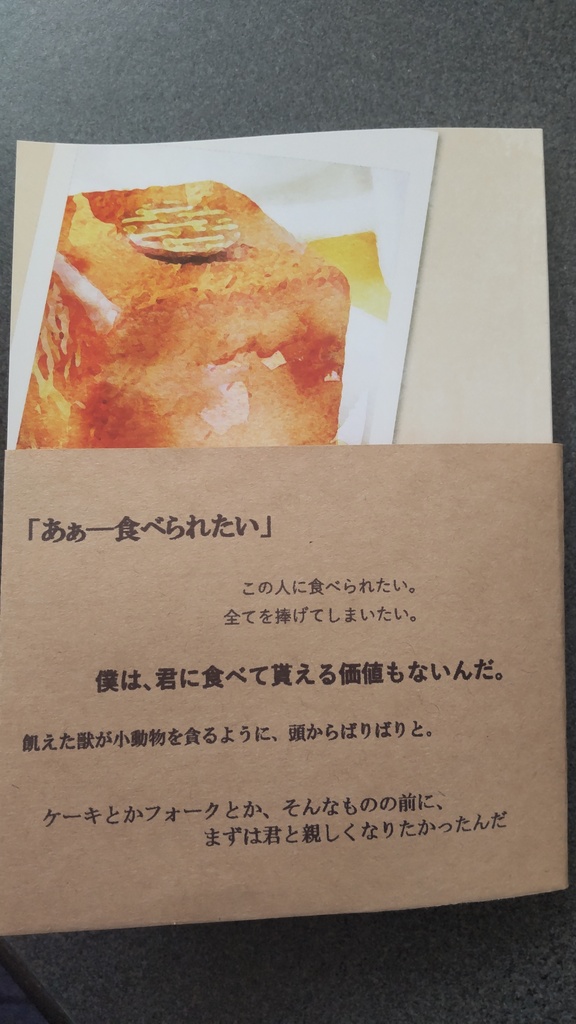 「あぁ―食べられたい」
この人に食べられたい。
全てを捧げてしまいたい。
僕は、君に食べて貰える価値もないんだ。
飢えた獣が小動物を貪るように、頭からばりばりと。
ケーキとかフォークとか、そんなものの前に、
まずは君と親しくなりたかったんだ